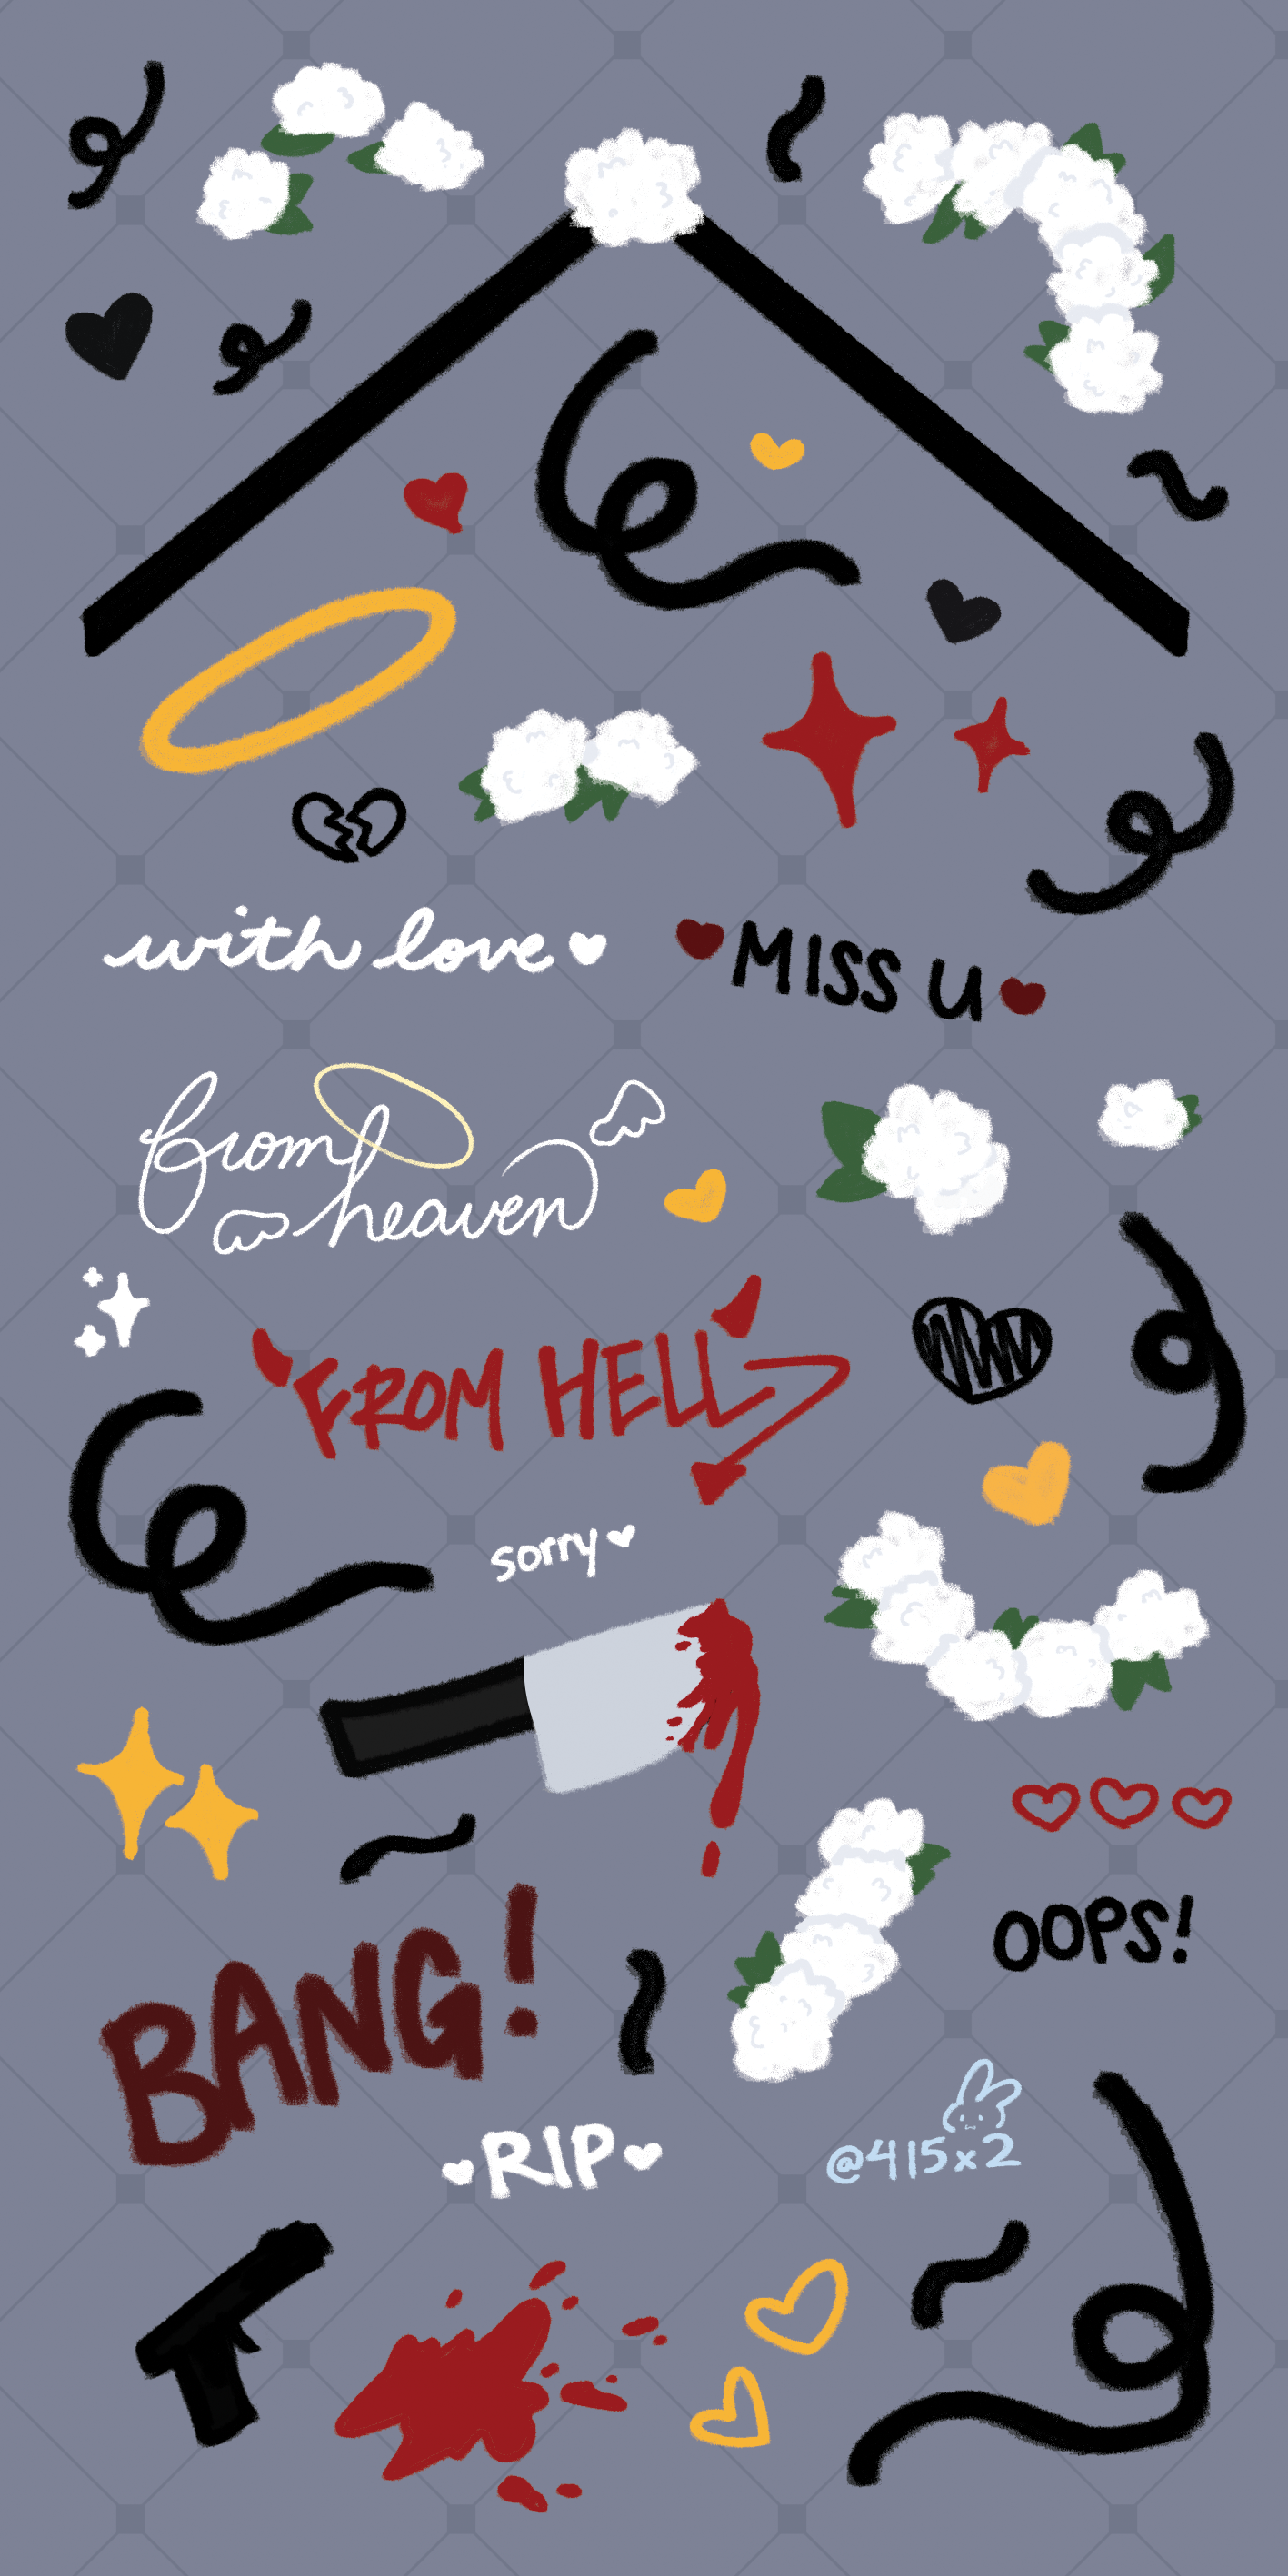 with love
MISS U
from
heaven
FROM HELL
sorry
BANG!
OOPS!
RIP
@415x2